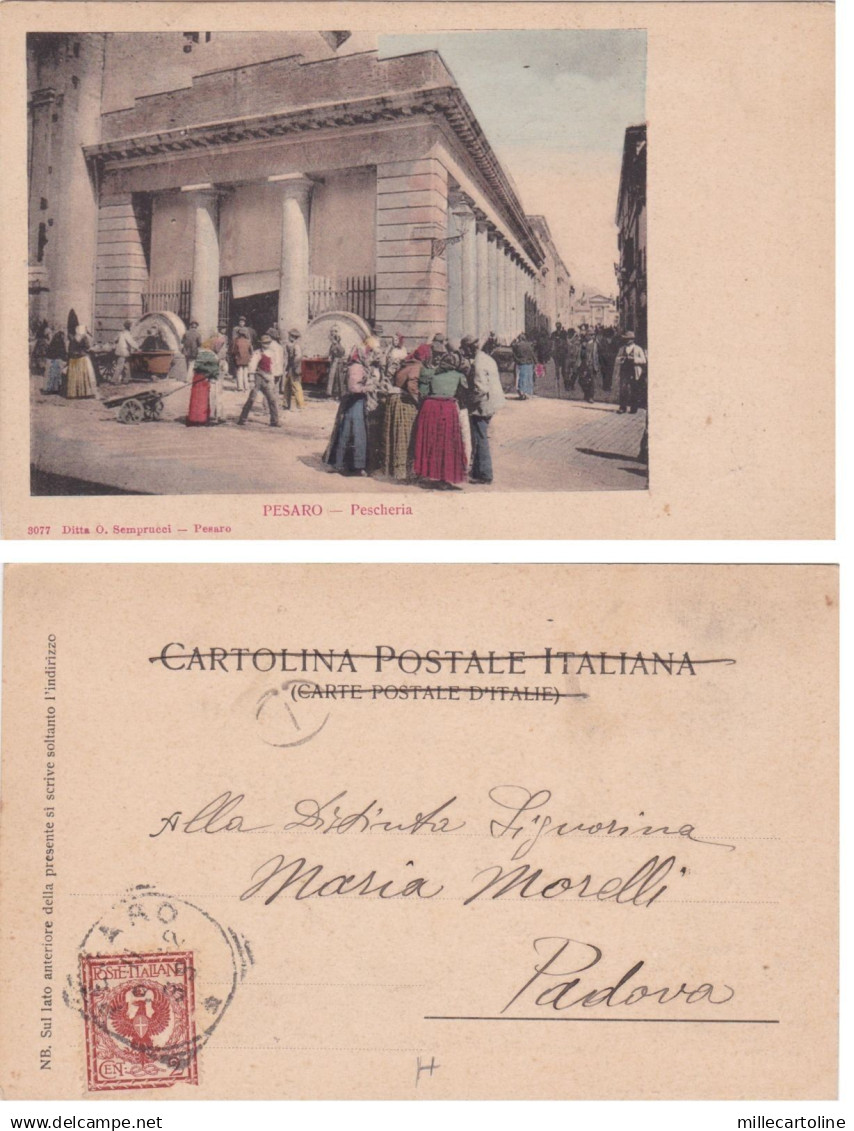 PESARO — Pescheria
3077 Ditta O. Semprucci — Pesaro
CARTOLINA POSTALE ITALIANA
(CARTE POSTALE D'ITALIE)
NB. Sul lato anteriore della presente si scrive soltanto l'indirizzo
Alla Distinta Signorina
Maria Morelli
Padova
POSTE·ITALIANE
CEN. 2
delcampe.net
millecartoline